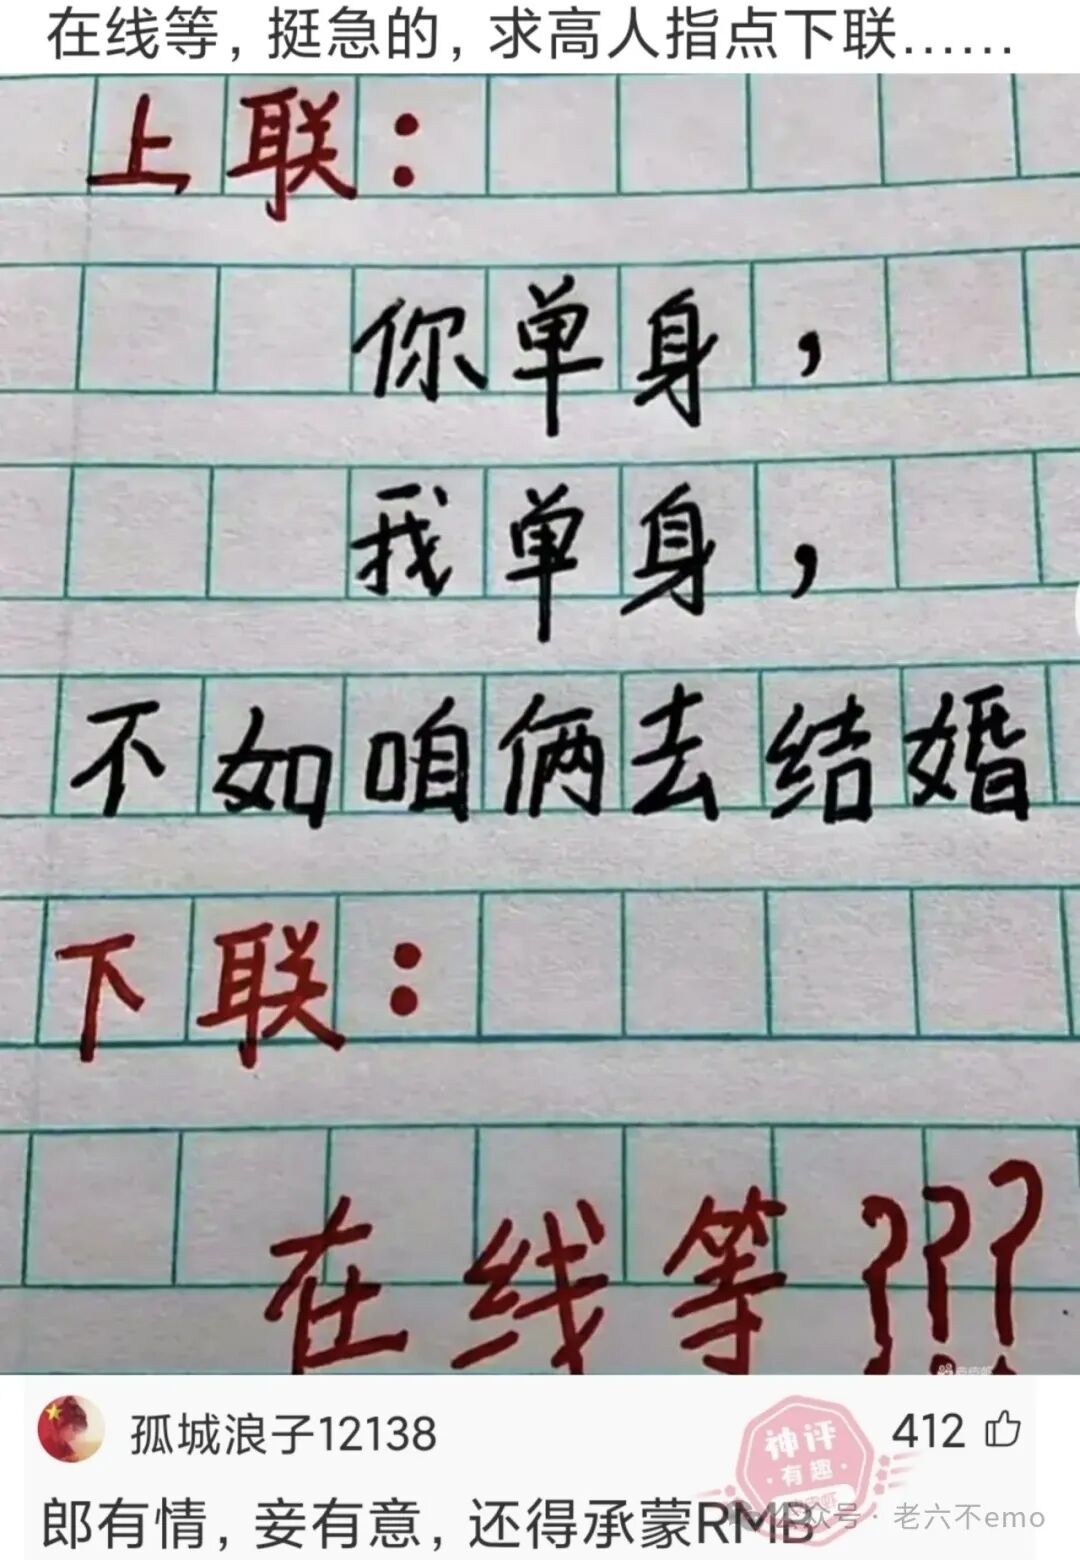 在线等，挺急的，求高人指点下联......
上联：
你单身，
我单身，
不如咱俩去结婚
下联：
在线等???
孤城浪子12138
412
神评
有趣
郎有情，妾有意，还得承蒙RMB
众号·老六不emo